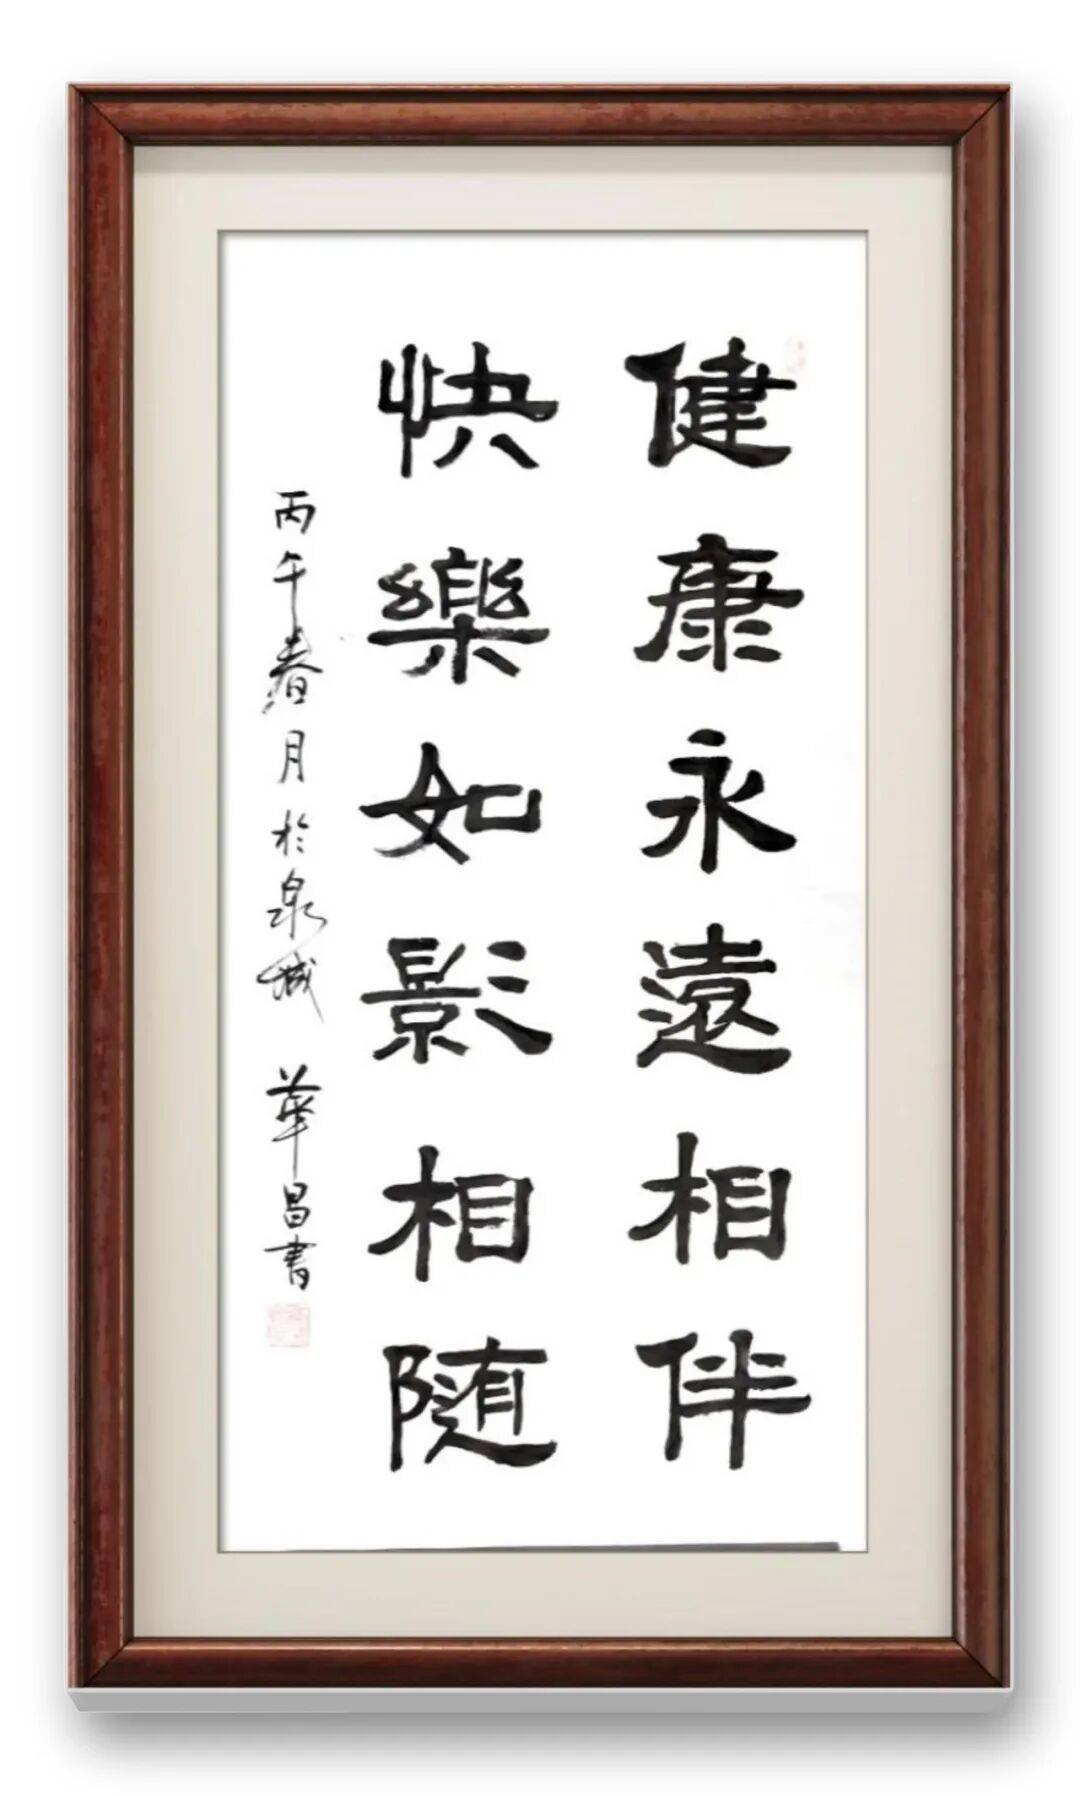 健康永遠相伴
快樂如影相隨
丙午春月於泉城 華昌書